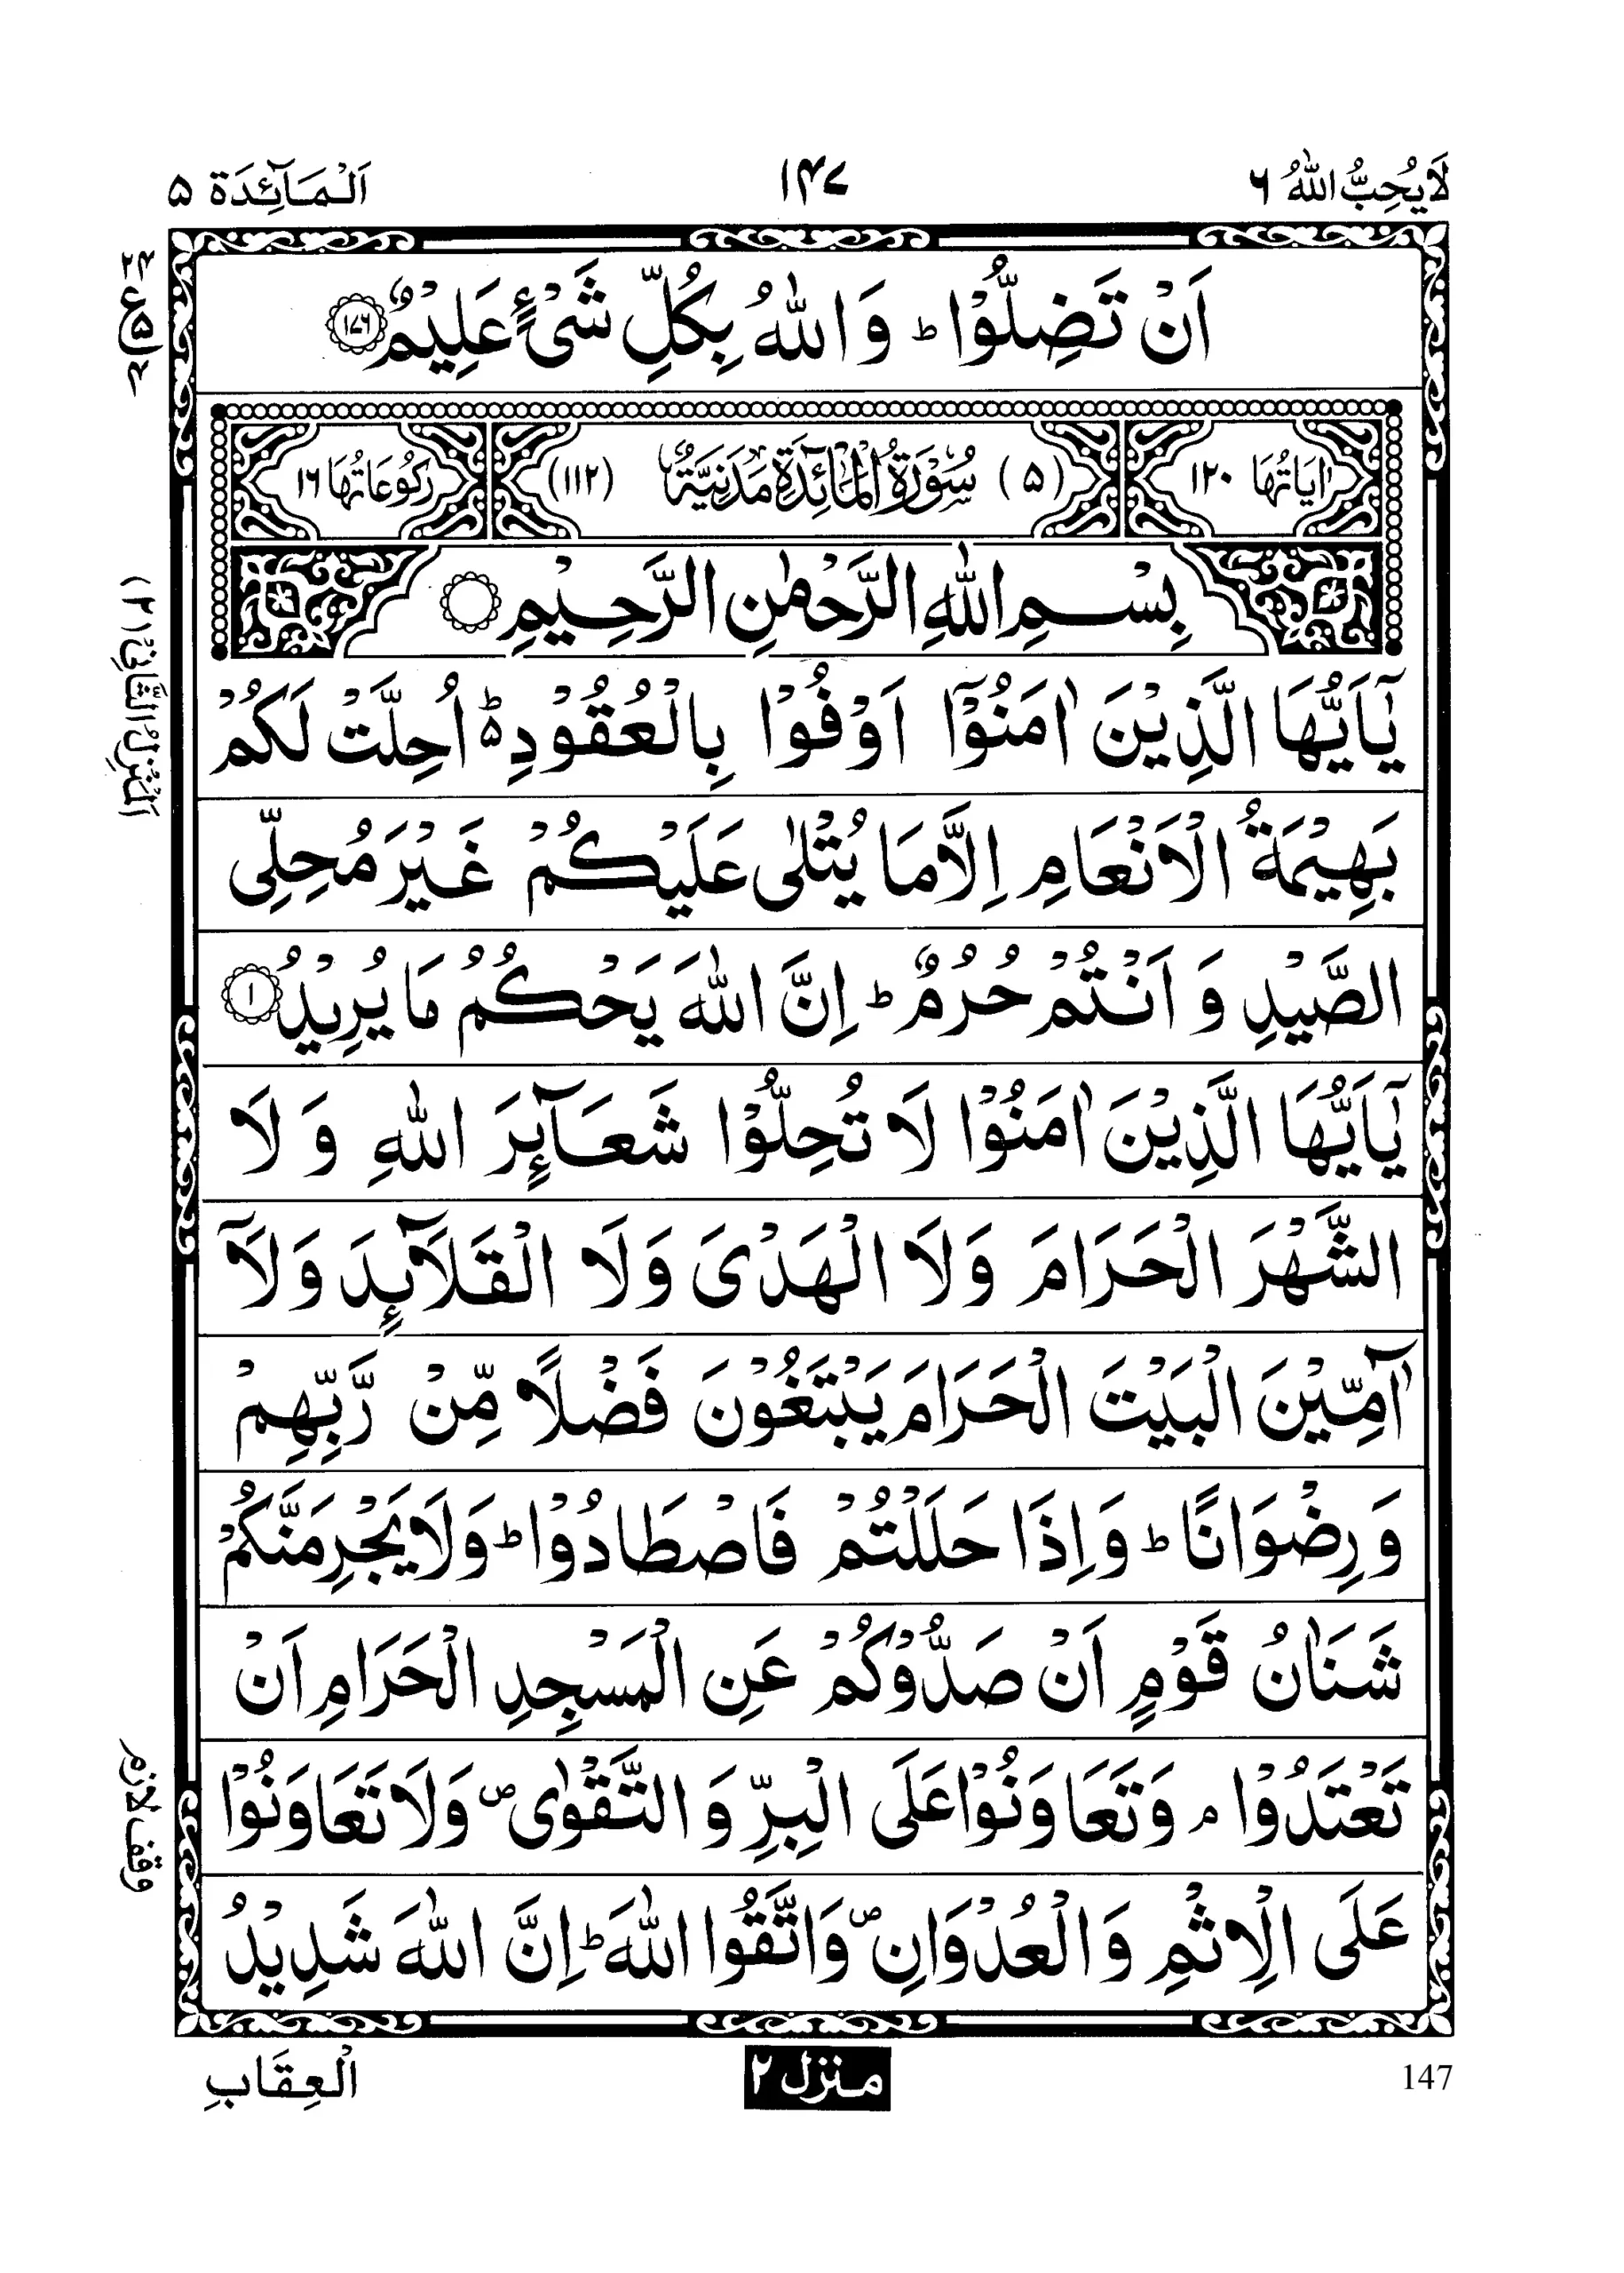 لَا يُحِبُّ اللّٰهُ ٦
١٤٧
اَلْمَآئِدَة ٥
اَنْ تَضِلُّوْا ؕ وَاللّٰهُ بِكُلِّ شَیْءٍ عَلِیْمٌ ۝١٧٦
اٰیَاتُهَا ١٢٠
(٥) سُوْرَةُ الْمَآئِدَةِ مَدَنِیَّةٌ (١١٢)
رُكُوْعَاتُهَا ١٦
بِسْمِ اللّٰهِ الرَّحْمٰنِ الرَّحِیْمِ
یٰۤاَیُّهَا الَّذِیْنَ اٰمَنُوْۤا اَوْفُوْا بِالْعُقُوْدِ ؕ۬ اُحِلَّتْ لَكُمْ
بَهِیْمَةُ الْاَنْعَامِ اِلَّا مَا یُتْلٰی عَلَیْكُمْ غَیْرَ مُحِلِّی
الصَّیْدِ وَ اَنْتُمْ حُرُمٌ ؕ اِنَّ اللّٰهَ یَحْكُمُ مَا یُرِیْدُ ۝١
یٰۤاَیُّهَا الَّذِیْنَ اٰمَنُوْا لَا تُحِلُّوْا شَعَآئِرَ اللّٰهِ وَ لَا
الشَّهْرَ الْحَرَامَ وَلَا الْهَدْیَ وَلَا الْقَلَآئِدَ وَلَاۤ
آٰمِّیْنَ الْبَیْتَ الْحَرَامَ یَبْتَغُوْنَ فَضْلًا مِّنْ رَّبِّهِمْ
وَ رِضْوَانًا ؕ وَاِذَا حَلَلْتُمْ فَاصْطَادُوْا ؕ وَلَا یَجْرِمَنَّكُمْ
شَنَاٰنُ قَوْمٍ اَنْ صَدُّوْكُمْ عَنِ الْمَسْجِدِ الْحَرَامِ اَنْ
تَعْتَدُوْا ۘ وَتَعَاوَنُوْا عَلَی الْبِرِّ وَ التَّقْوٰی ۪ وَلَا تَعَاوَنُوْا
عَلَی الْاِثْمِ وَ الْعُدْوَانِ ۪ وَاتَّقُوا اللّٰهَ ؕ اِنَّ اللّٰهَ شَدِیْدُ
اَلْمَنْزِلُ الثَّانِیْ (٢)
وقف لازم
147
منزل ٢
الْعِقَابِ